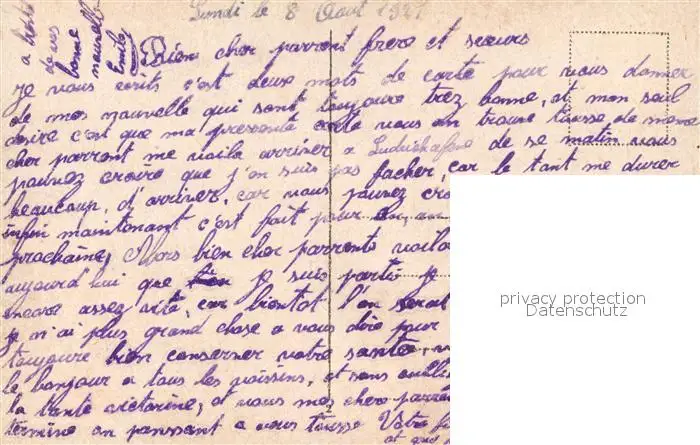 Lundi le 8 Août 1921
a bientôt
de vos
bonne
nouvelle
Emile
Bien cher parrent frere et sœurs
Je vous ecrits c'est deux mots de carte pour vous donner
de mes nouvelle qui sont toujoure trez bonne, et mon seul
desire c'est que ma pressente carte vous en trouve tousse de meme
cher parrent me voila arriver a Ludwichafene de se matin vous
pouvez croire que j'en suis pas facher, car le tant me durer
beaucoup, d'arriver, car vous pouvez cro
infin maintenant c'est fait pour un, an
prochaine, Alors bien cher parrents voila
aujourd'hui que je suis partie je
encore assez vite, car bientot l'on serat
je n'ai plus grand chose a vous dire pour
toujoure bien conserver votre santée, v
le bonjour a tous les voissins, et sans oublier
la tante victorine, et vous mes cher parren
termine en panssant a vous tousse Votre fi
et qui
privacy protection
Datenschutz